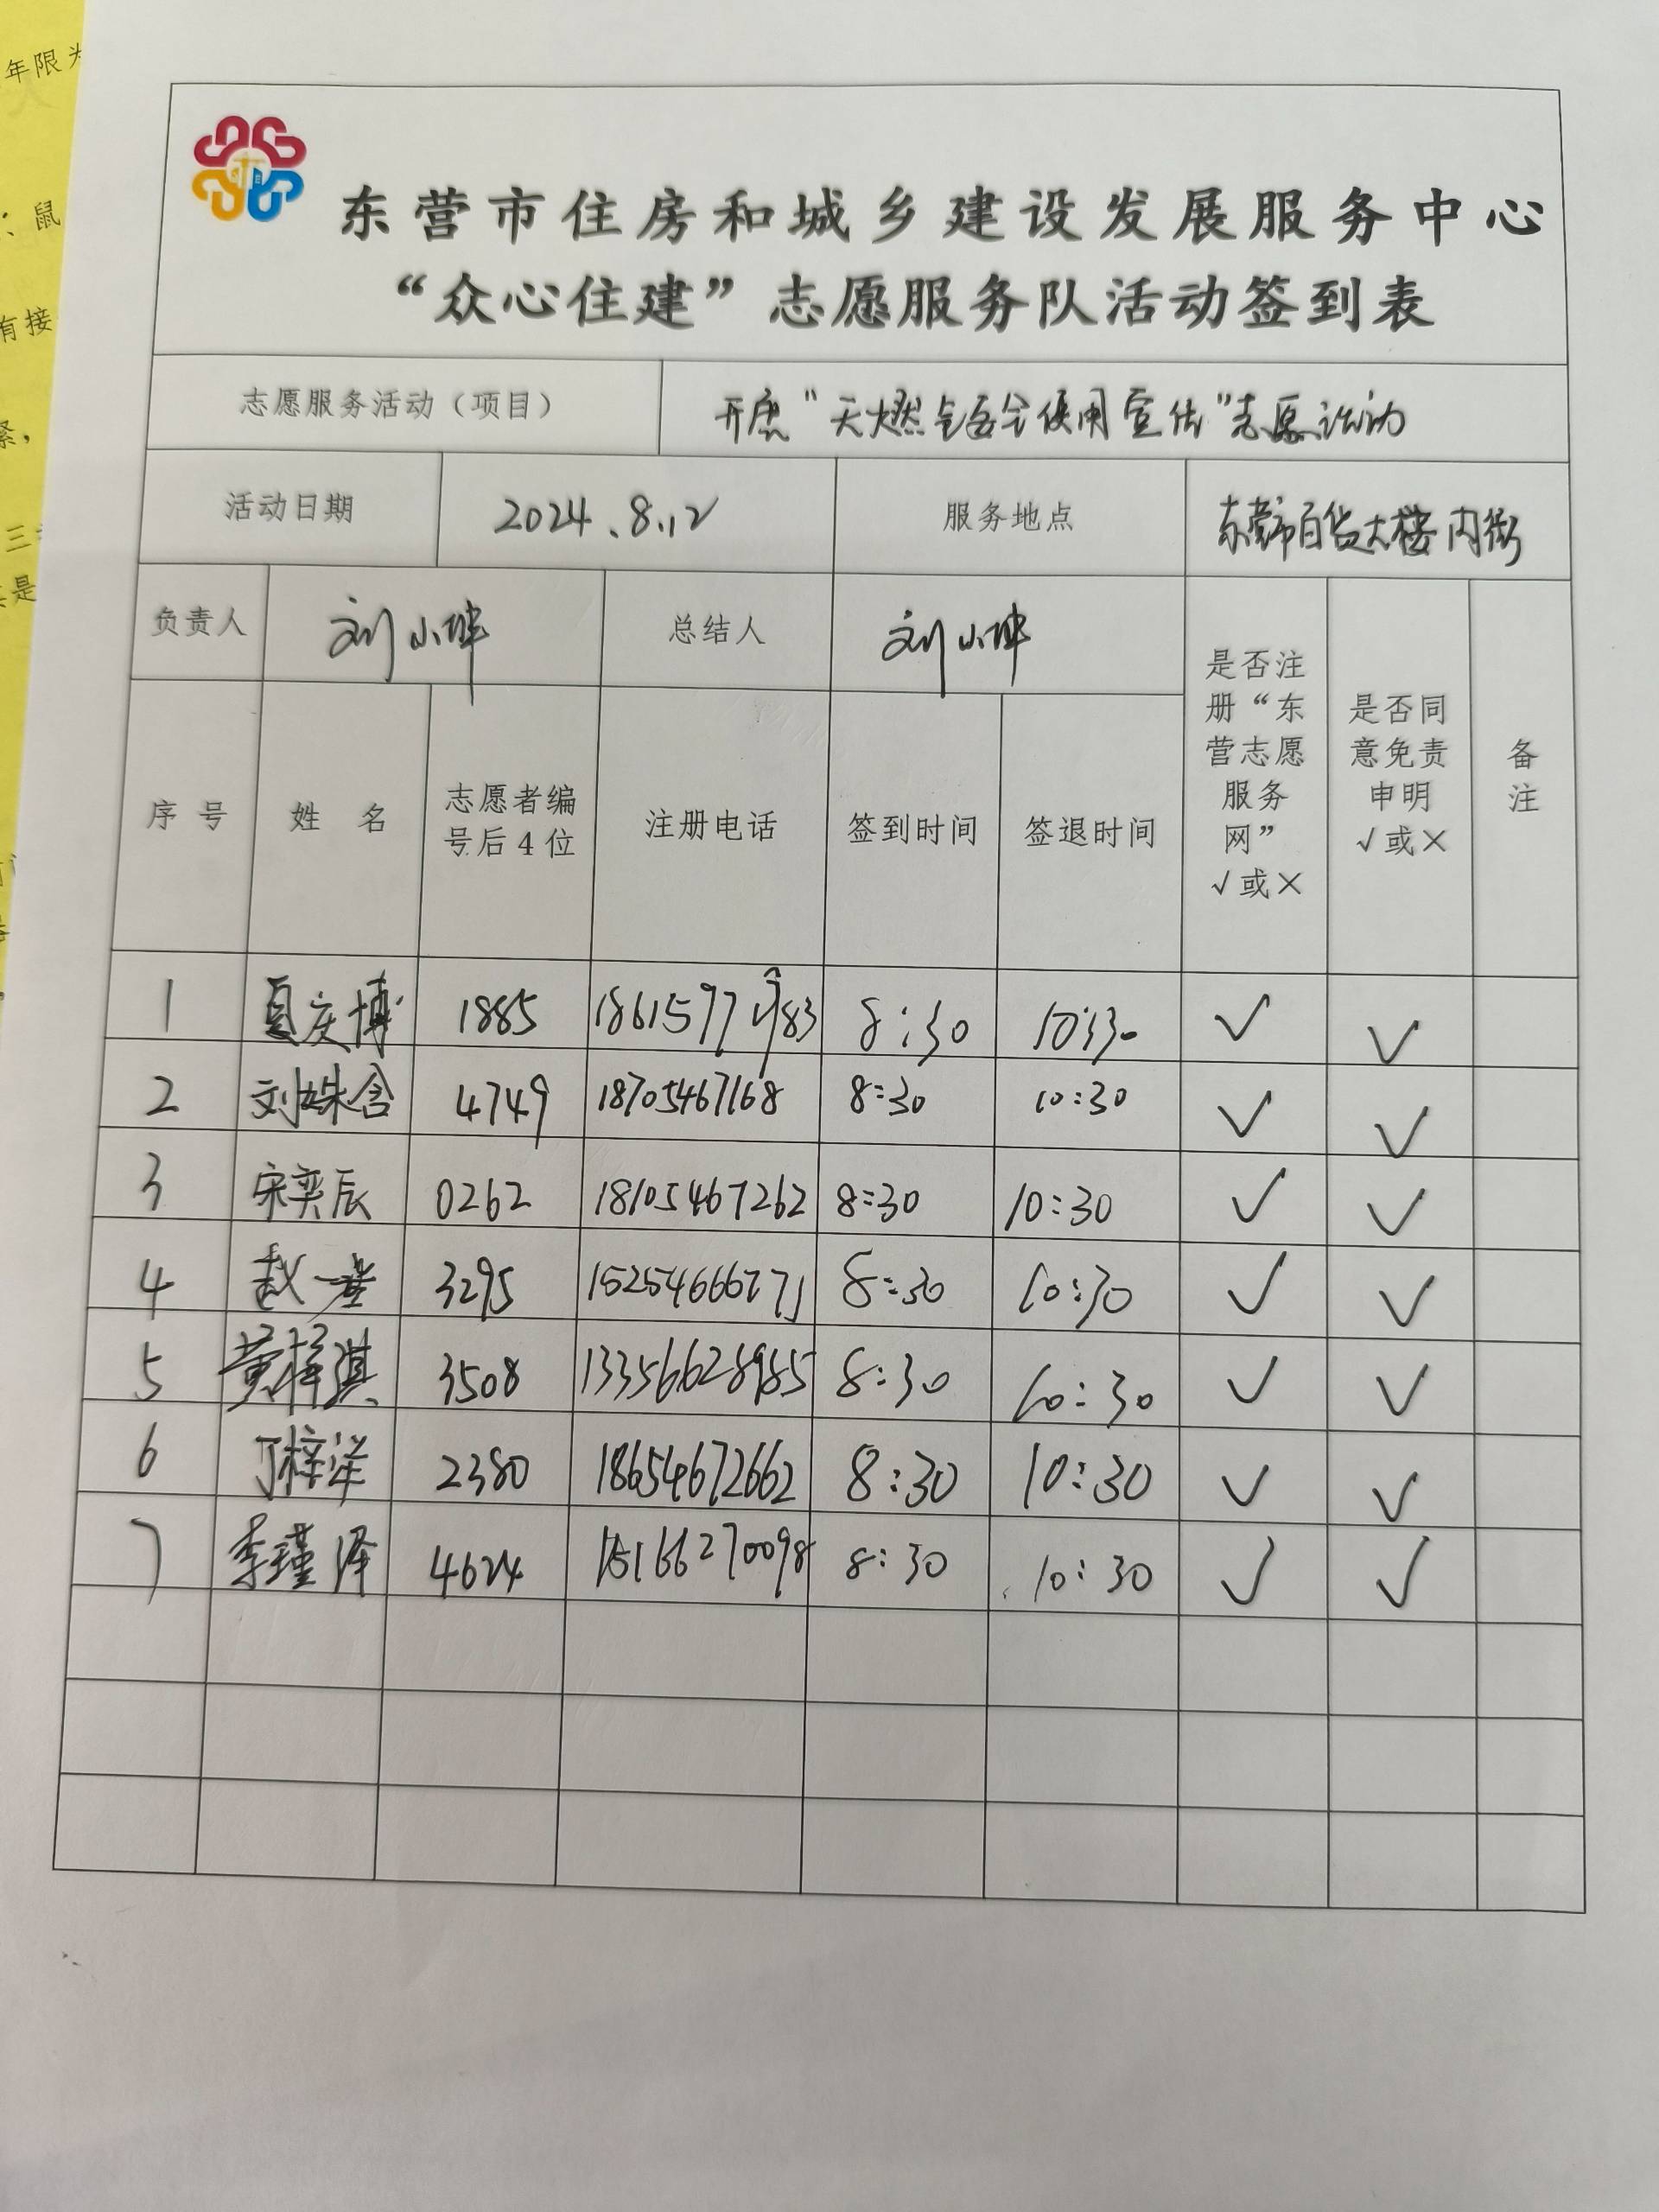 年限为
：鼠
有接
紧，
三
是
东营市住房和城乡建设发展服务中心
“众心住建”志愿服务队活动签到表
志愿服务活动（项目） 开展“天燃气安全使用宣传”志愿活动
活动日期 2024.8.12 服务地点 东营市百货大楼内街
负责人 刘小坤 总结人 刘小坤
序号 姓名 志愿者编号后4位 注册电话 签到时间 签退时间 是否注册“东营志愿服务网”√或× 是否同意免责申明√或× 备注
1 夏庆博 1885 8:30 10:30 √ √
2 刘姝含 4749 18705467168 8:30 10:30 √ √
3 宋奕辰 0262 18105467262 8:30 10:30 √ √
4 赵一 3295 8:30 10:30 √ √
5 黄梓淇 3508 13356628985 8:30 10:30 √ √
6 丁梓洋 2380 18654672662 8:30 10:30 √ √
7 李瑾泽 4624 15166270098 8:30 10:30 √ √